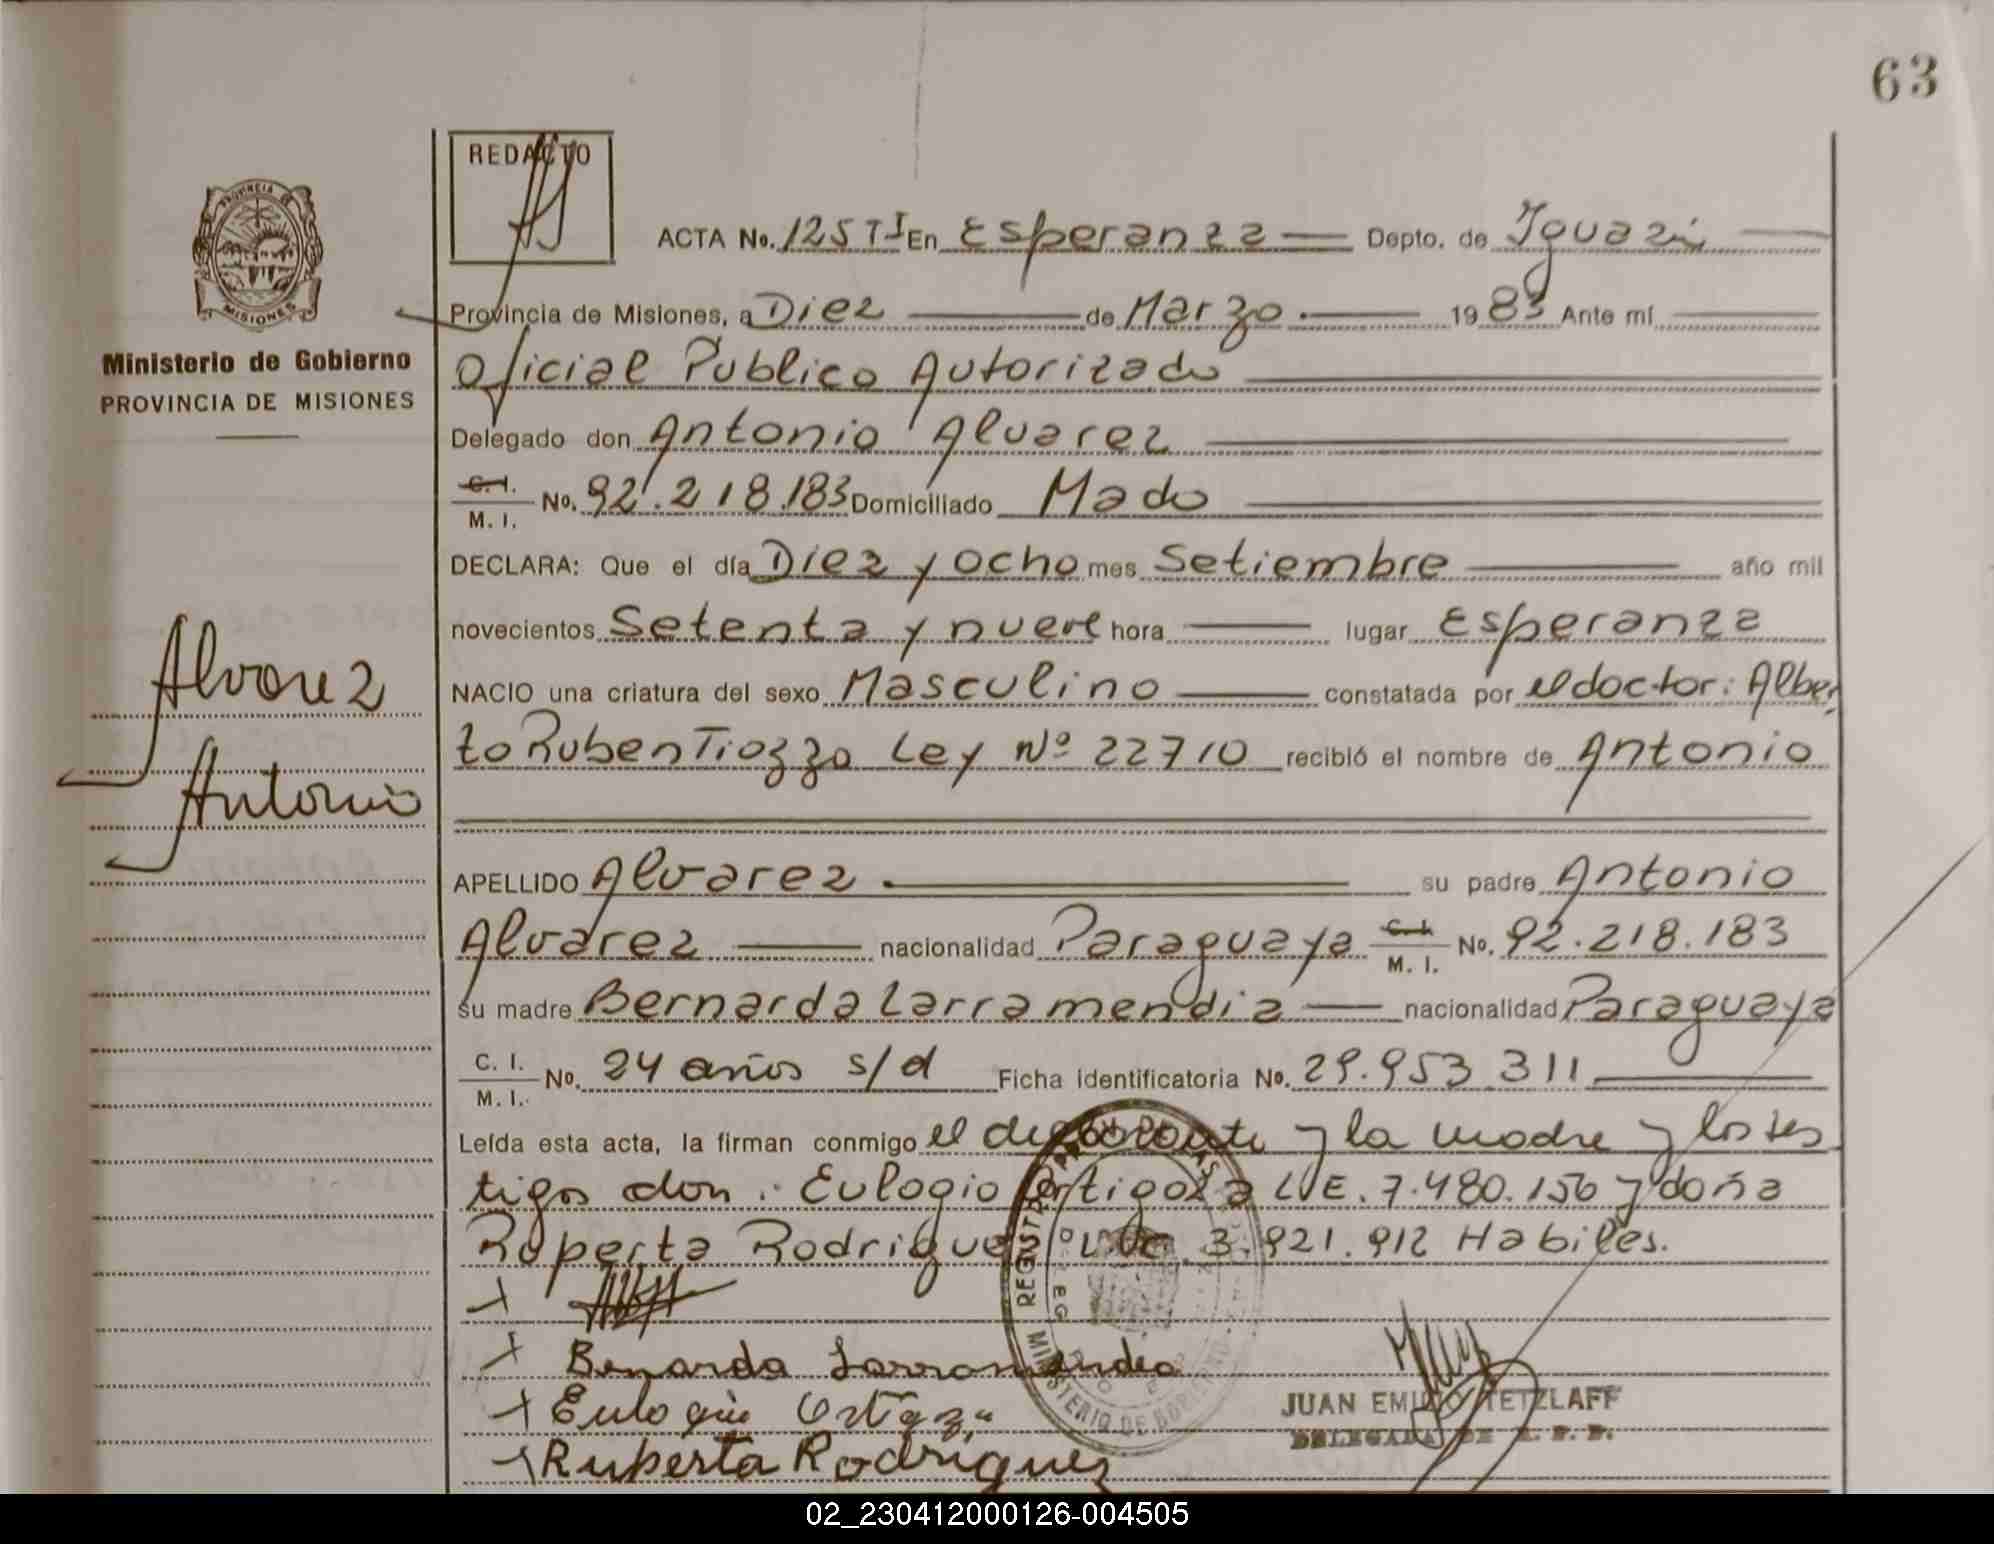 63
REDACTO
ACTA No. 125 TI En Esperanza Depto. de Iguazú
Provincia de Misiones, a Diez de Marzo 1983 Ante mí
Oficial Público Autorizado
Ministerio de Gobierno
PROVINCIA DE MISIONES
Delegado don Antonio Alvarez
C. I. M. I. No. 92.218.183 Domiciliado Mado
DECLARA: Que el día Diez y ocho mes Setiembre año mil
novecientos Setenta y nueve hora lugar Esperanza
NACIO una criatura del sexo Masculino constatada por el doctor: Alber
to Ruben Tiozzo Ley Nº 22710 recibió el nombre de Antonio
Alvarez
Antonio
APELLIDO Alvarez su padre Antonio
Alvarez nacionalidad Paraguaya C. I. M. I. No. 92.218.183
su madre Bernarda Larramendia nacionalidad Paraguaya
C. I. M. I. No. 24 años s/d Ficha identificatoria No. 29.953.311
Leída esta acta, la firman conmigo el declarante y la madre y los tes
tigos don: Eulogio Ortigoza L.E. 7.480.156 y doña
Ruperta Rodrigue 3.921.912 Habiles.
Benarda Larramendia
Eulogio
Ruperta Rodriguez
JUAN EMILIO TETZLAFF
MINISTERIO DE GOBIERNO
02_230412000126-004505